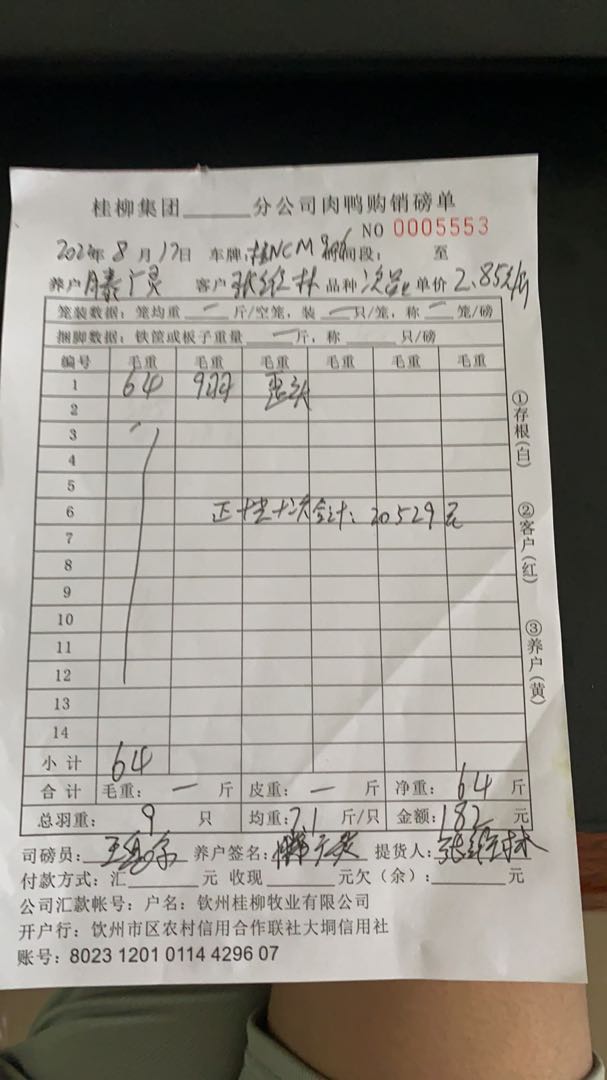 桂柳集团______分公司肉鸭购销磅单
NO 0005553
8月17日 车牌: NCM 时间段: 至
养户 客户 张维林 品种 次品 单价 2.85元/斤
笼装数据: 笼均重 — 斤/空笼, 装 — 只/笼, 称 — 笼/磅
捆脚数据: 铁筐或板子重量 — 斤, 称 只/磅
编号 毛重 毛重 毛重 毛重 毛重 毛重
1 64 9羽 歪头
2
3
4
5
6 20529元
7
8
9
10
11
12
13
14
小计 64
合计 毛重: — 斤 皮重: — 斤 净重: 64 斤
总羽重: 9 只 均重: 7.1 斤/只 金额: 182 元
司磅员: 养户签名: 提货人: 张维林
付款方式: 汇______元 收现______元欠(余):______元
公司汇款帐号: 户名: 钦州桂柳牧业有限公司
开户行: 钦州市区农村信用合作联社大垌信用社
账号: 8023 1201 0114 4296 07
①存根(白)
②客户(红)
③养户(黄)